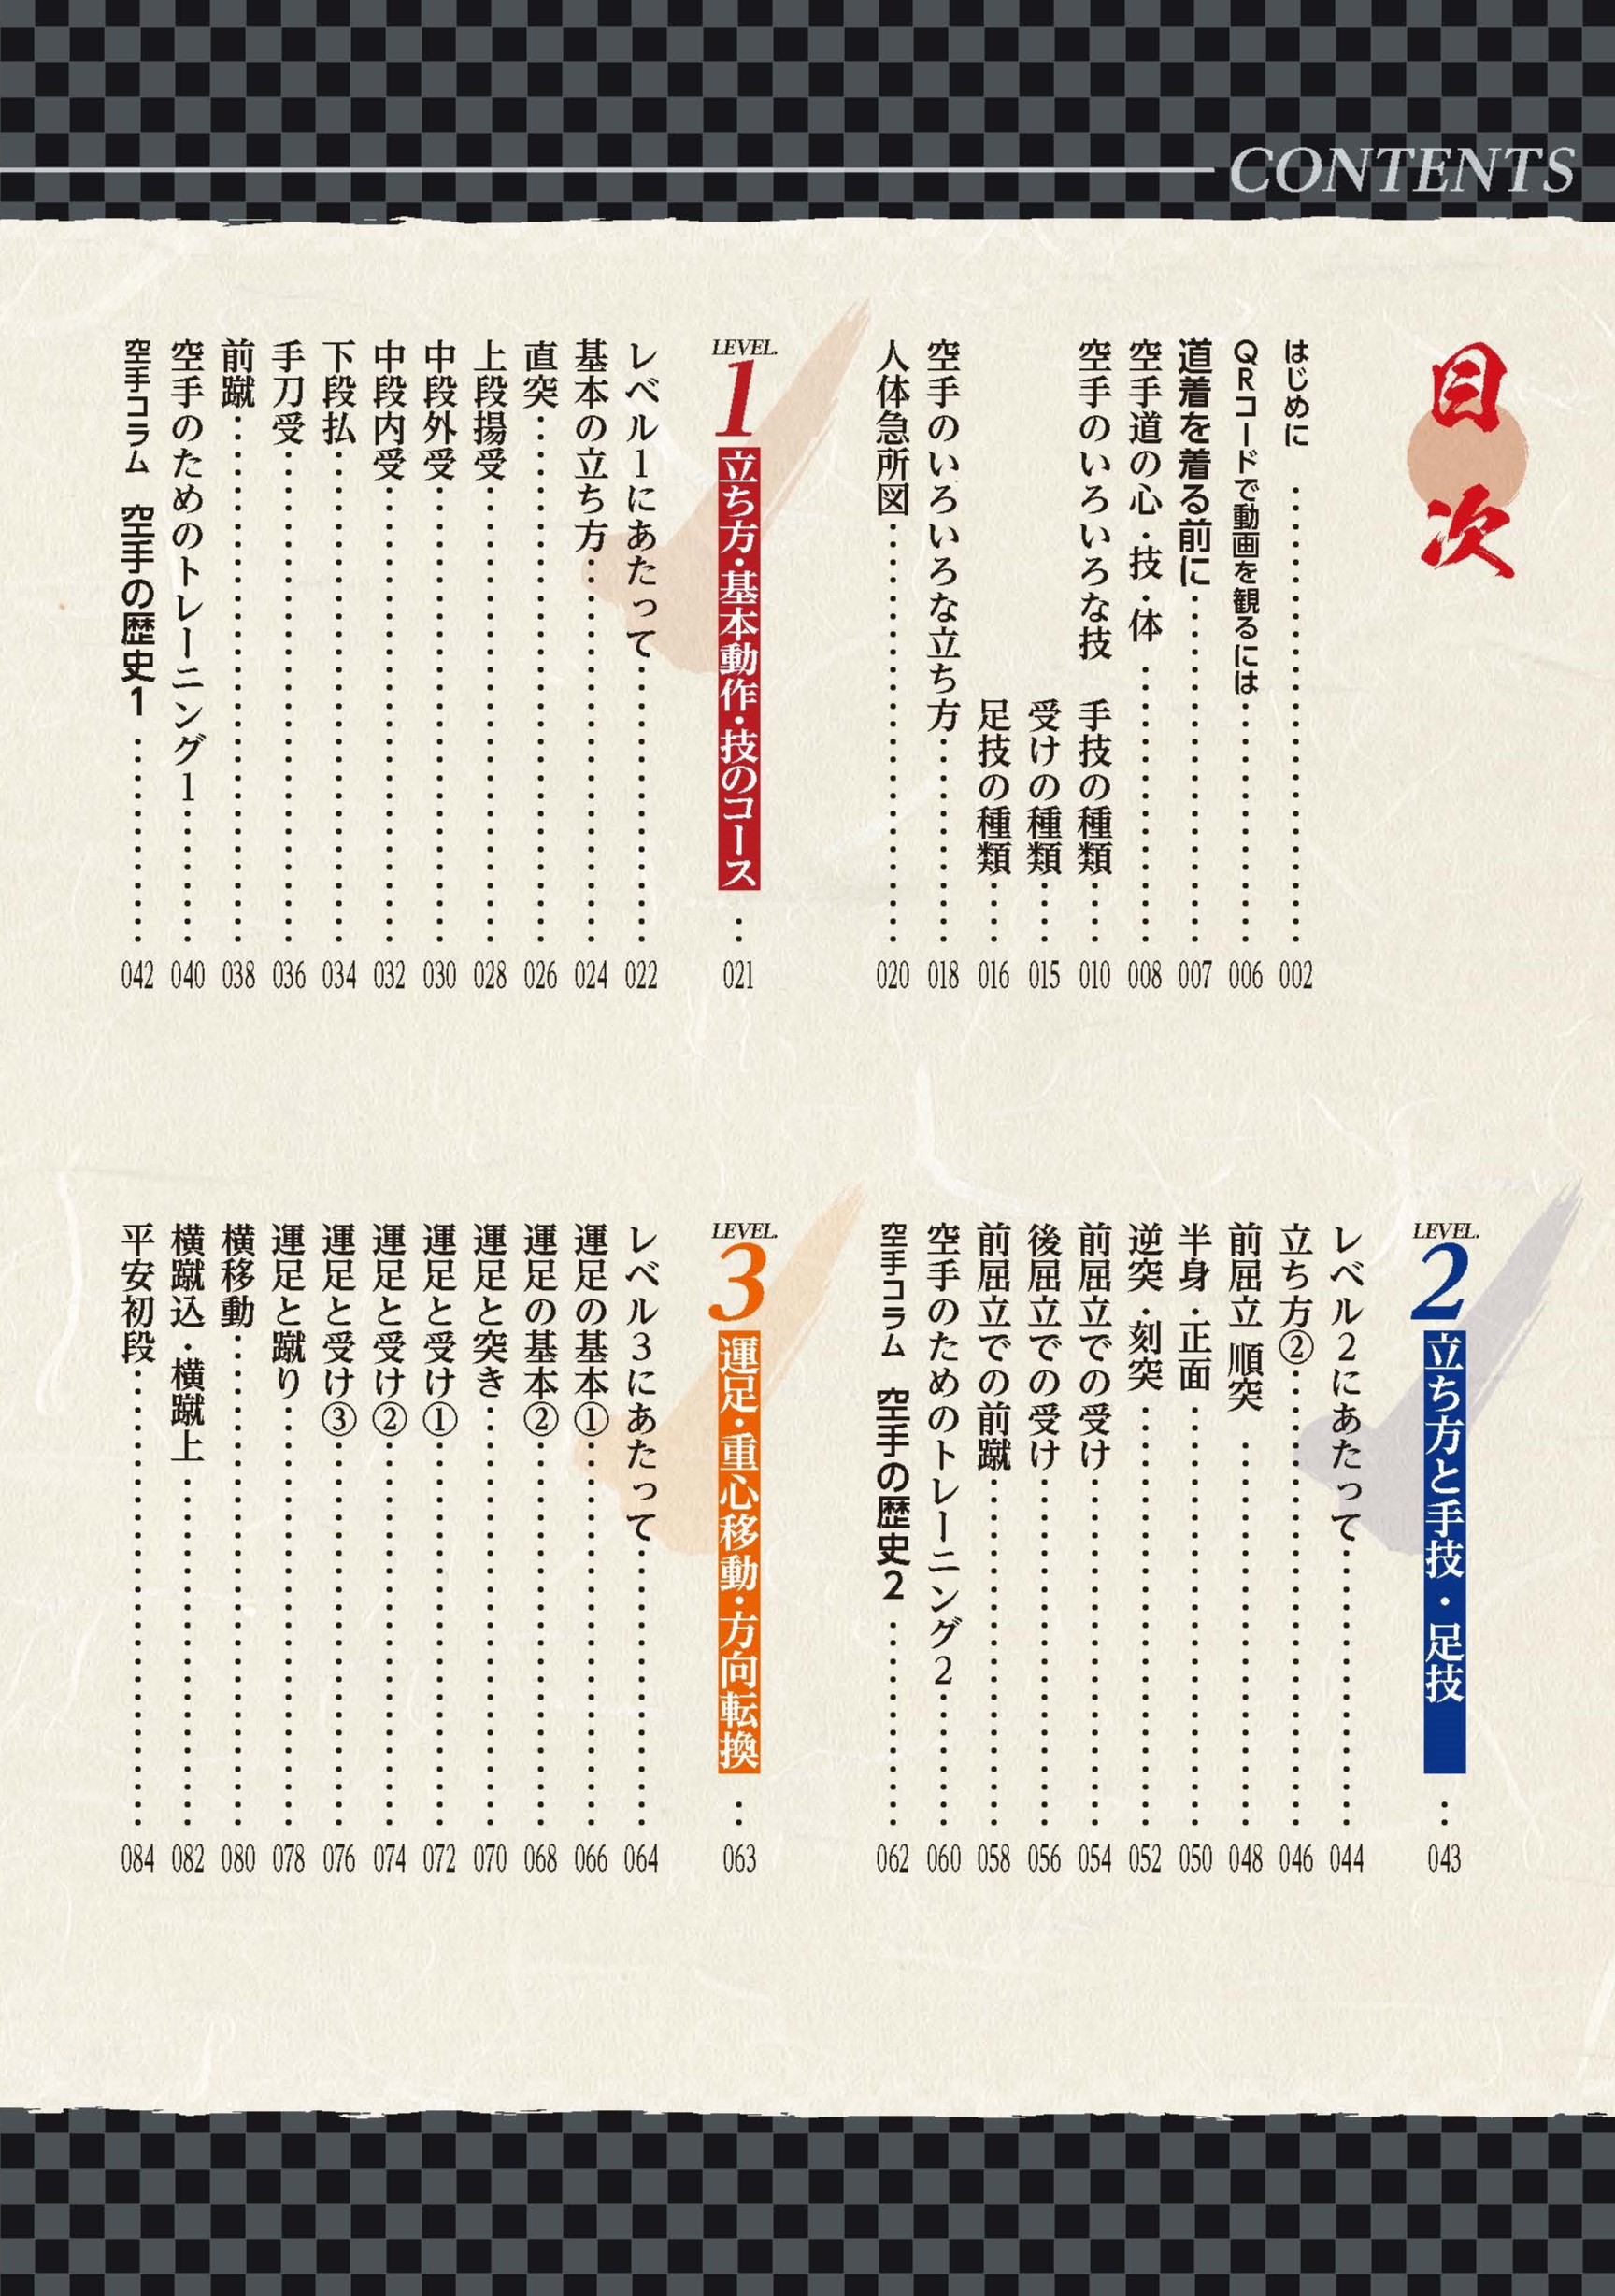 CONTENTS
目次
はじめに ………… 002
QRコードで動画を観るには ………… 006
道着を着る前に ………… 007
空手道の心・技・体 ………… 008
空手のいろいろな技 手技の種類 …… 010
受けの種類 …… 015
足技の種類 …… 016
空手のいろいろな立ち方 ………… 018
人体急所図 ………… 020
LEVEL.1 立ち方・基本動作・技のコース … 021
レベル1にあたって ………… 022
基本の立ち方 ………… 024
直突 ………… 026
上段揚受 ………… 028
中段外受 ………… 030
中段内受 ………… 032
下段払 ………… 034
手刀受 ………… 036
前蹴 ………… 038
空手のためのトレーニング1 ………… 040
空手コラム 空手の歴史1 ………… 042
LEVEL.2 立ち方と手技・足技 … 043
レベル2にあたって ………… 044
立ち方② ………… 046
前屈立 順突 ………… 048
半身・正面 ………… 050
逆突・刻突 ………… 052
前屈立での受け ………… 054
後屈立での受け ………… 056
前屈立での前蹴 ………… 058
空手のためのトレーニング2 ………… 060
空手コラム 空手の歴史2 ………… 062
LEVEL.3 運足・重心移動・方向転換 … 063
レベル3にあたって ………… 064
運足の基本① ………… 066
運足の基本② ………… 068
運足と突き ………… 070
運足と受け① ………… 072
運足と受け② ………… 074
運足と受け③ ………… 076
運足と蹴り ………… 078
横移動 ………… 080
横蹴込・横蹴上 ………… 082
平安初段 ………… 084